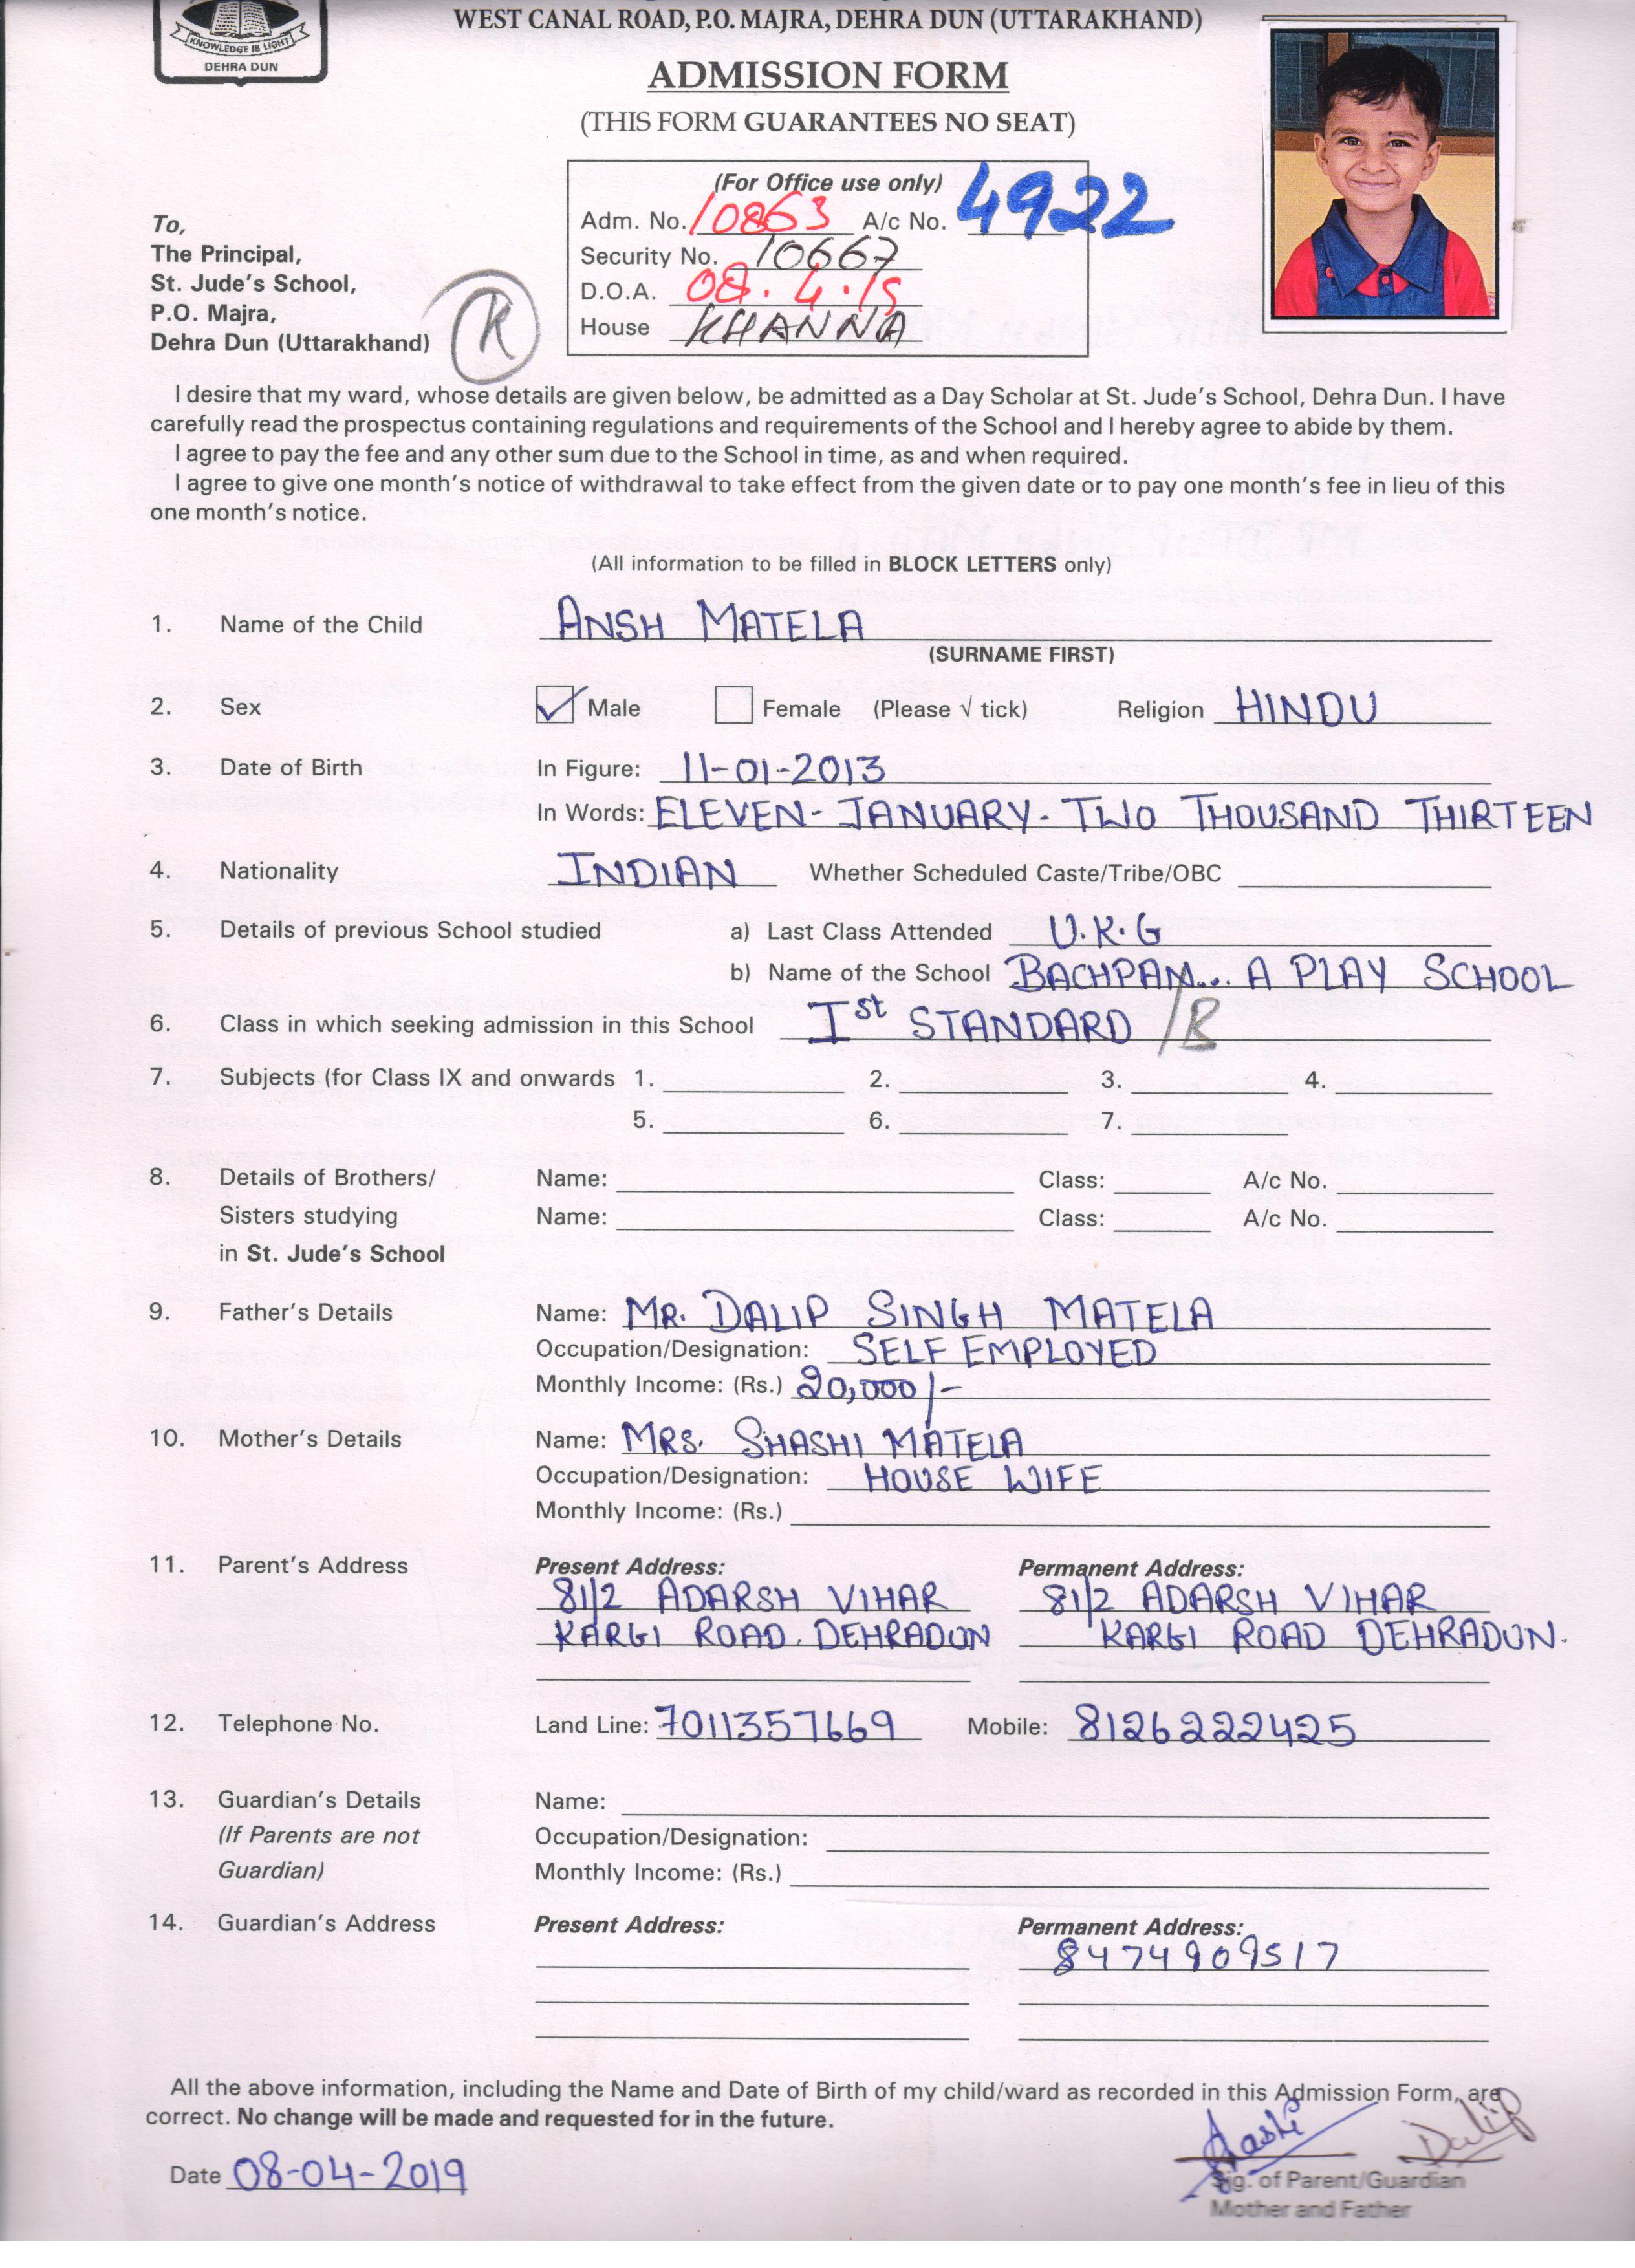 KNOWLEDGE IS LIGHT
DEHRA DUN
WEST CANAL ROAD, P.O. MAJRA, DEHRA DUN (UTTARAKHAND)
ADMISSION FORM
(THIS FORM GUARANTEES NO SEAT)
(For Office use only)
Adm. No. 10863 A/c No. 4922
Security No. 10667
D.O.A. 08.4.19
House KHANNA
To,
The Principal,
St. Jude's School,
P.O. Majra,
Dehra Dun (Uttarakhand)
K
I desire that my ward, whose details are given below, be admitted as a Day Scholar at St. Jude's School, Dehra Dun. I have
carefully read the prospectus containing regulations and requirements of the School and I hereby agree to abide by them.
I agree to pay the fee and any other sum due to the School in time, as and when required.
I agree to give one month's notice of withdrawal to take effect from the given date or to pay one month's fee in lieu of this
one month's notice.
(All information to be filled in BLOCK LETTERS only)
1. Name of the Child ANSH MATELA
(SURNAME FIRST)
2. Sex Male Female (Please √ tick) Religion HINDU
3. Date of Birth In Figure: 11-01-2013
In Words: ELEVEN- JANUARY- TWO THOUSAND THIRTEEN
4. Nationality INDIAN Whether Scheduled Caste/Tribe/OBC
5. Details of previous School studied a) Last Class Attended U.K.G
b) Name of the School BACHPAN... A PLAY SCHOOL
6. Class in which seeking admission in this School Ist STANDARD /B
7. Subjects (for Class IX and onwards 1. 2. 3. 4.
5. 6. 7.
8. Details of Brothers/ Name: Class: A/c No.
Sisters studying Name: Class: A/c No.
in St. Jude's School
9. Father's Details Name: MR. DALIP SINGH MATELA
Occupation/Designation: SELF EMPLOYED
Monthly Income: (Rs.) 20,000/-
10. Mother's Details Name: MRS. SHASHI MATELA
Occupation/Designation: HOUSE WIFE
Monthly Income: (Rs.)
11. Parent's Address Present Address: Permanent Address:
81/2 ADARSH VIHAR 81/2 ADARSH VIHAR
KARGI ROAD. DEHRADUN KARGI ROAD DEHRADUN.
12. Telephone No. Land Line: 7011357669 Mobile: 8126222425
13. Guardian's Details Name:
(If Parents are not Occupation/Designation:
Guardian) Monthly Income: (Rs.)
14. Guardian's Address Present Address: Permanent Address:
8474909517
All the above information, including the Name and Date of Birth of my child/ward as recorded in this Admission Form, are
correct. No change will be made and requested for in the future.
Dalip
Date 08-04-2019
Sig. of Parent/Guardian
Mother and Father